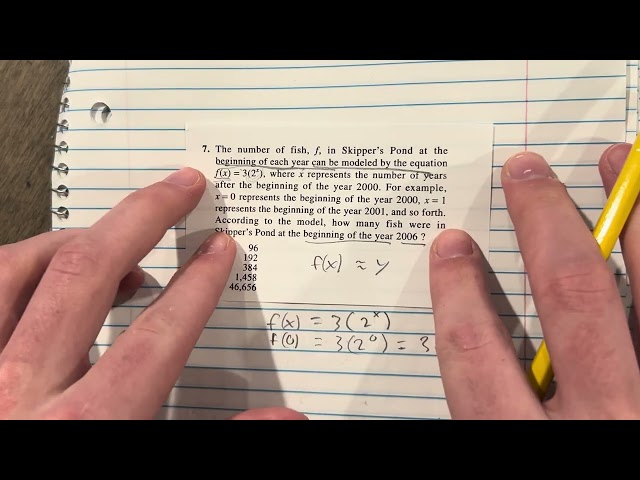 7. The number of fish, f, in Skipper's Pond at the
beginning of each year can be modeled by the equation
f(x) = 3(2ˣ), where x represents the number of years
after the beginning of the year 2000. For example,
x = 0 represents the beginning of the year 2000, x = 1
represents the beginning of the year 2001, and so forth.
According to the model, how many fish were in
Skipper's Pond at the beginning of the year 2006 ?
96
192
384
1,458
46,656
f(x) ≈ y
f(x) = 3(2ˣ)
f(0) = 3(2⁰) = 3